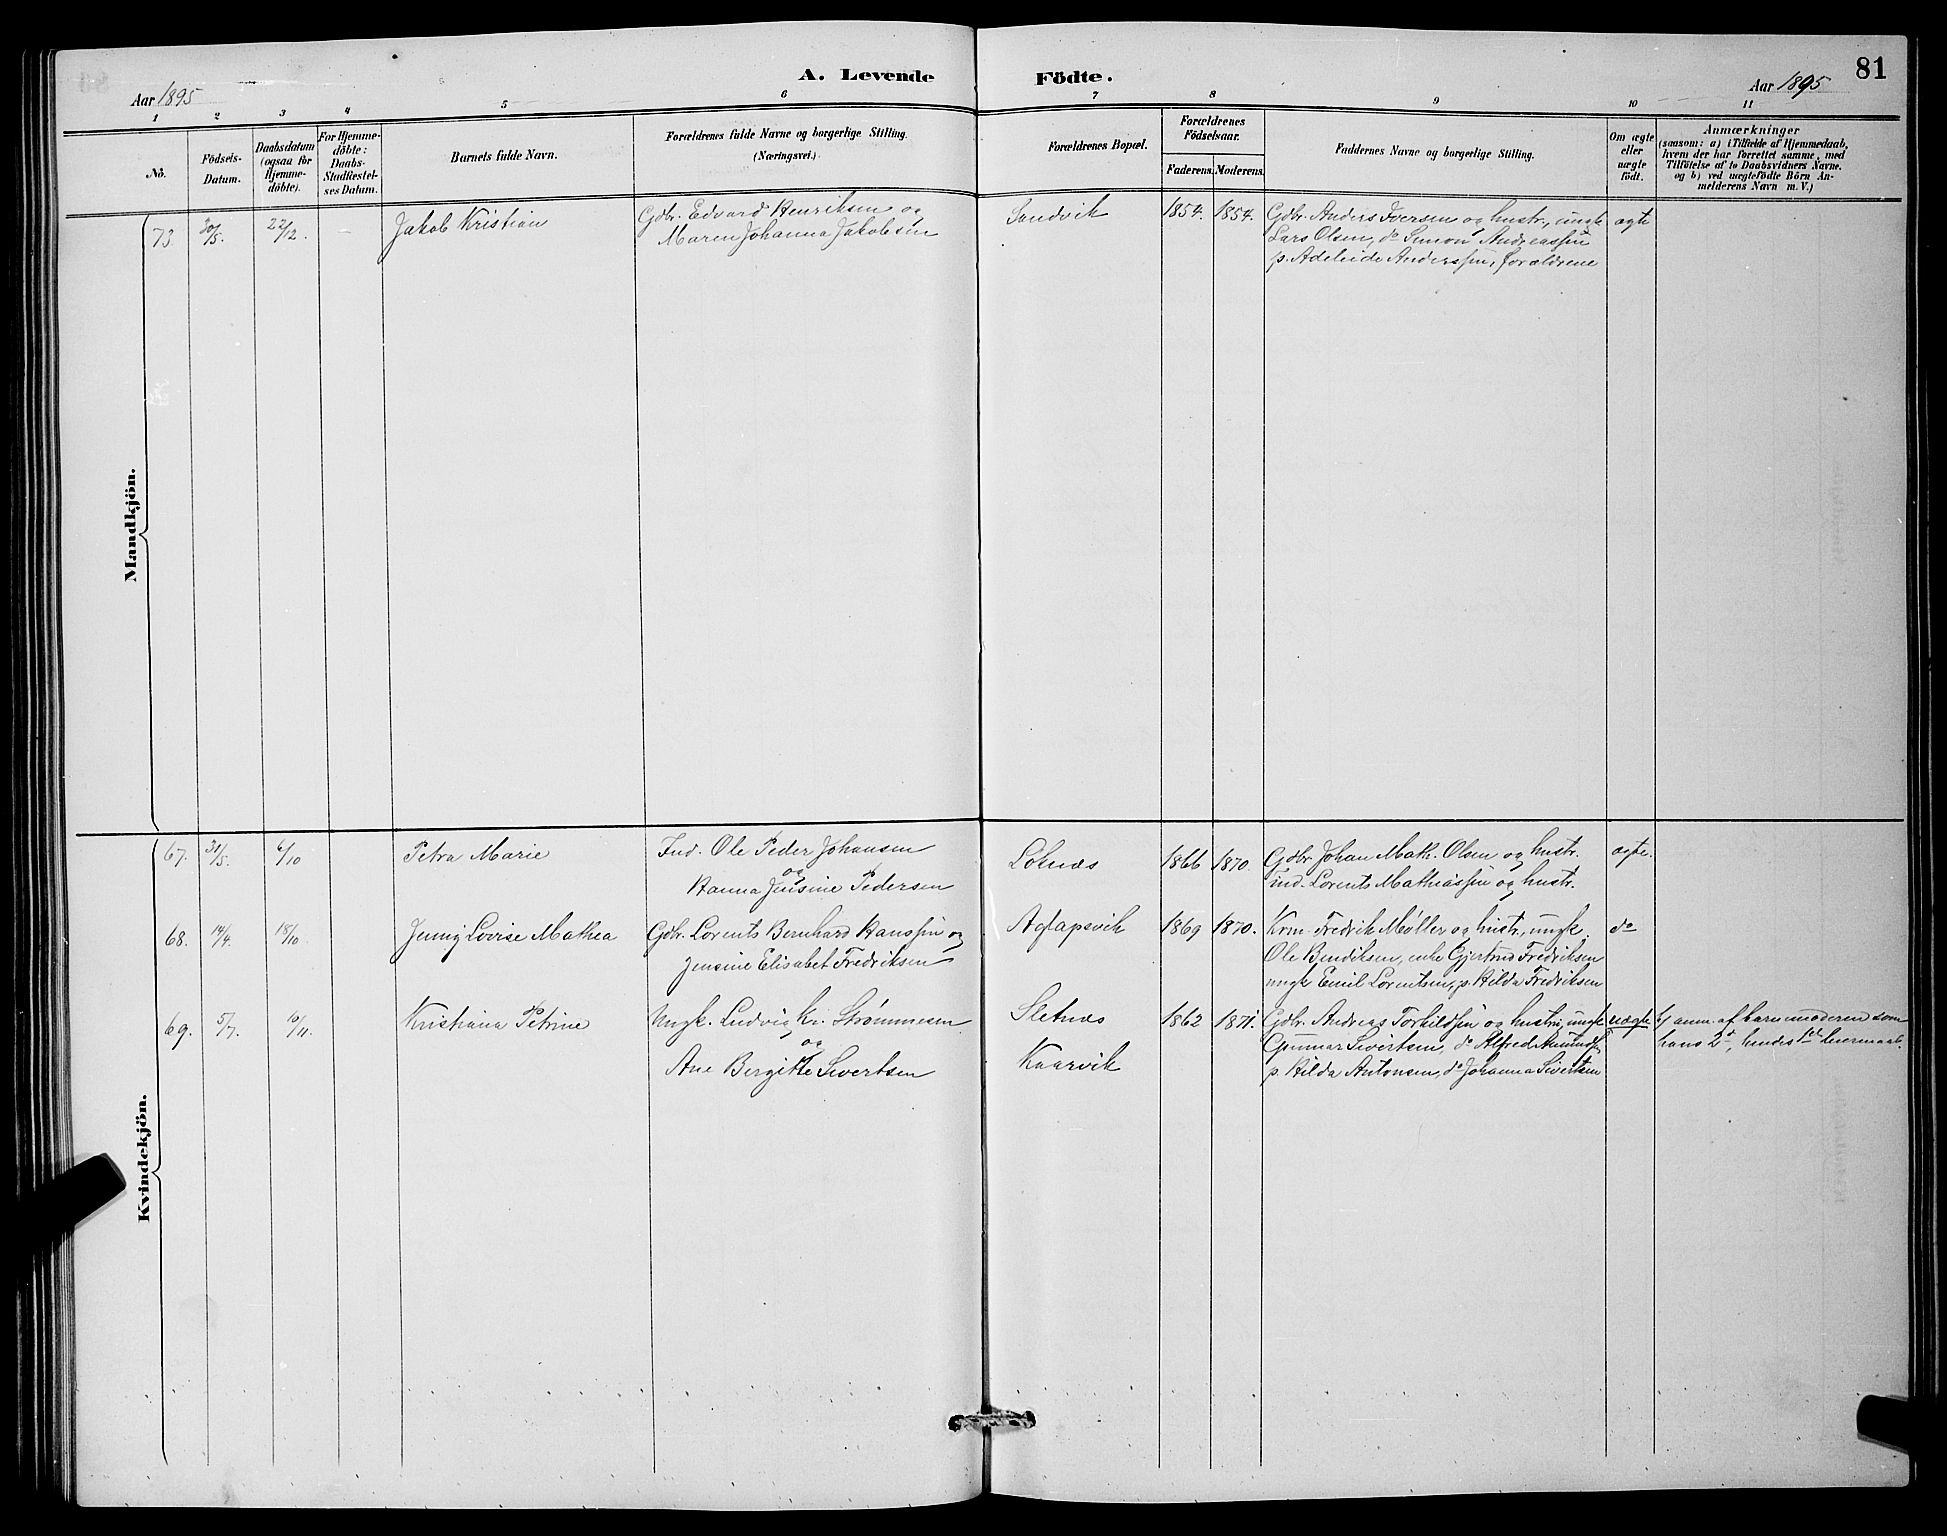 A. Levende Födte.
81
Aar 1895
Aar 1895
1 2 3 4 5 6 7 8 9 10 11
No.
Födsels-
Datum.
Daabsdatum
(ogsaa for
Hjemme-
döbte).
For Hjemme-
döbte:
Daabs-
Stadfæstel-
ses Datum.
Barnets fulde Navn.
Forældrenes fulde Navne og borgerlige Stilling.
(Næringsvei.)
Forældrenes Bopæl.
Forældrenes
Födselsaar.
Faderens. Moderens.
Faddernes Navne og borgerlige Stilling.
Om ægte
eller
uægte
födt.
Anmærkninger
(saasom: a) i Tilfælde af Hjemmedaab,
hvem der har forrettet samme, med
Tilföielse af to Daabsvidners Navne.
og b) ved uægtefödte Börn An-
melderens Navn m. V.)
Mandkjön.
73. 30/5. 22/12. - Jakob Kristian
Gdbr. Edvard Henriksen og
Maren Johanna Jakobsen
Sandvik 1854. 1854.
Gdbr. Anders Iversen og hustr., ungk.
Lars Olsen, do Simon Andreassen
p. Adeleide Anderssen, forældrene
ægte
Kvindekjön.
67. 31/5. 6/10 Petra Marie
Ind. Ole Peder Johansen
og
Hanna Jensine Pedersen
Løknæs 1866 1870.
Gdbr. Johan Math. Olsen og hustr.
ind. Lorents Mathiassen og hustr.
ægte.
68. 14/4. 18/10 Jenny Lovise Mathea
Gdbr. Lorents Bernhard Hanssen og
Jensine Elisabet Fredriksen
Aglapsvik 1869 1870.
Krm. Fredrik Møller og hustr., ungk.
Ole Bendiksen, enke Gjertrud Fredriksen
ungk. Emil Lorentsen, p. Hilda Fredriksen
do
69. 5/7. 10/11. Kristiana Petrine
Ungk. Ludvig Kr. Strømmesen
og
Ane Bergitte Sivertsen
Sletnæs
Kaarvik
1862 1871.
Gdbr. Andreas Torkildsen og hustru, ungk
Gunnar Sivertsen, do Alfred
p. Hilda Antonsen, do Johanna Sivertsen
uægte
b/ anm. af barnemoderen som
hans 2d, hendes 1ste leiermaal.